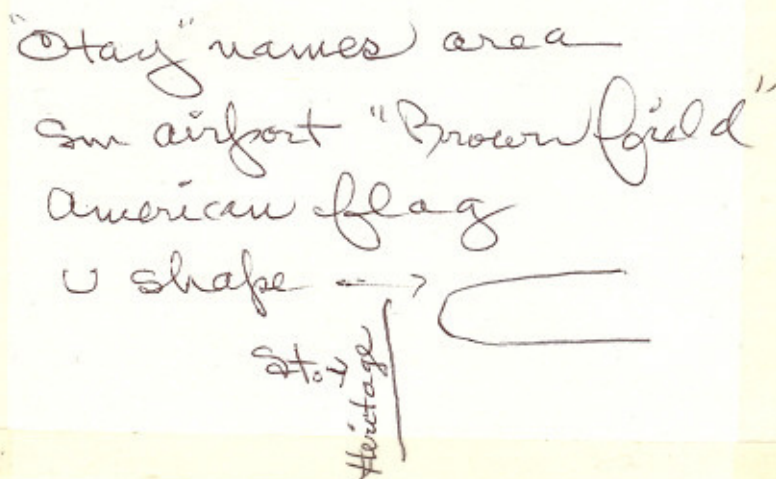 "Otay" names area
Sm airport "Brown field"
American flag
U shape →
St. ↓
Heritage